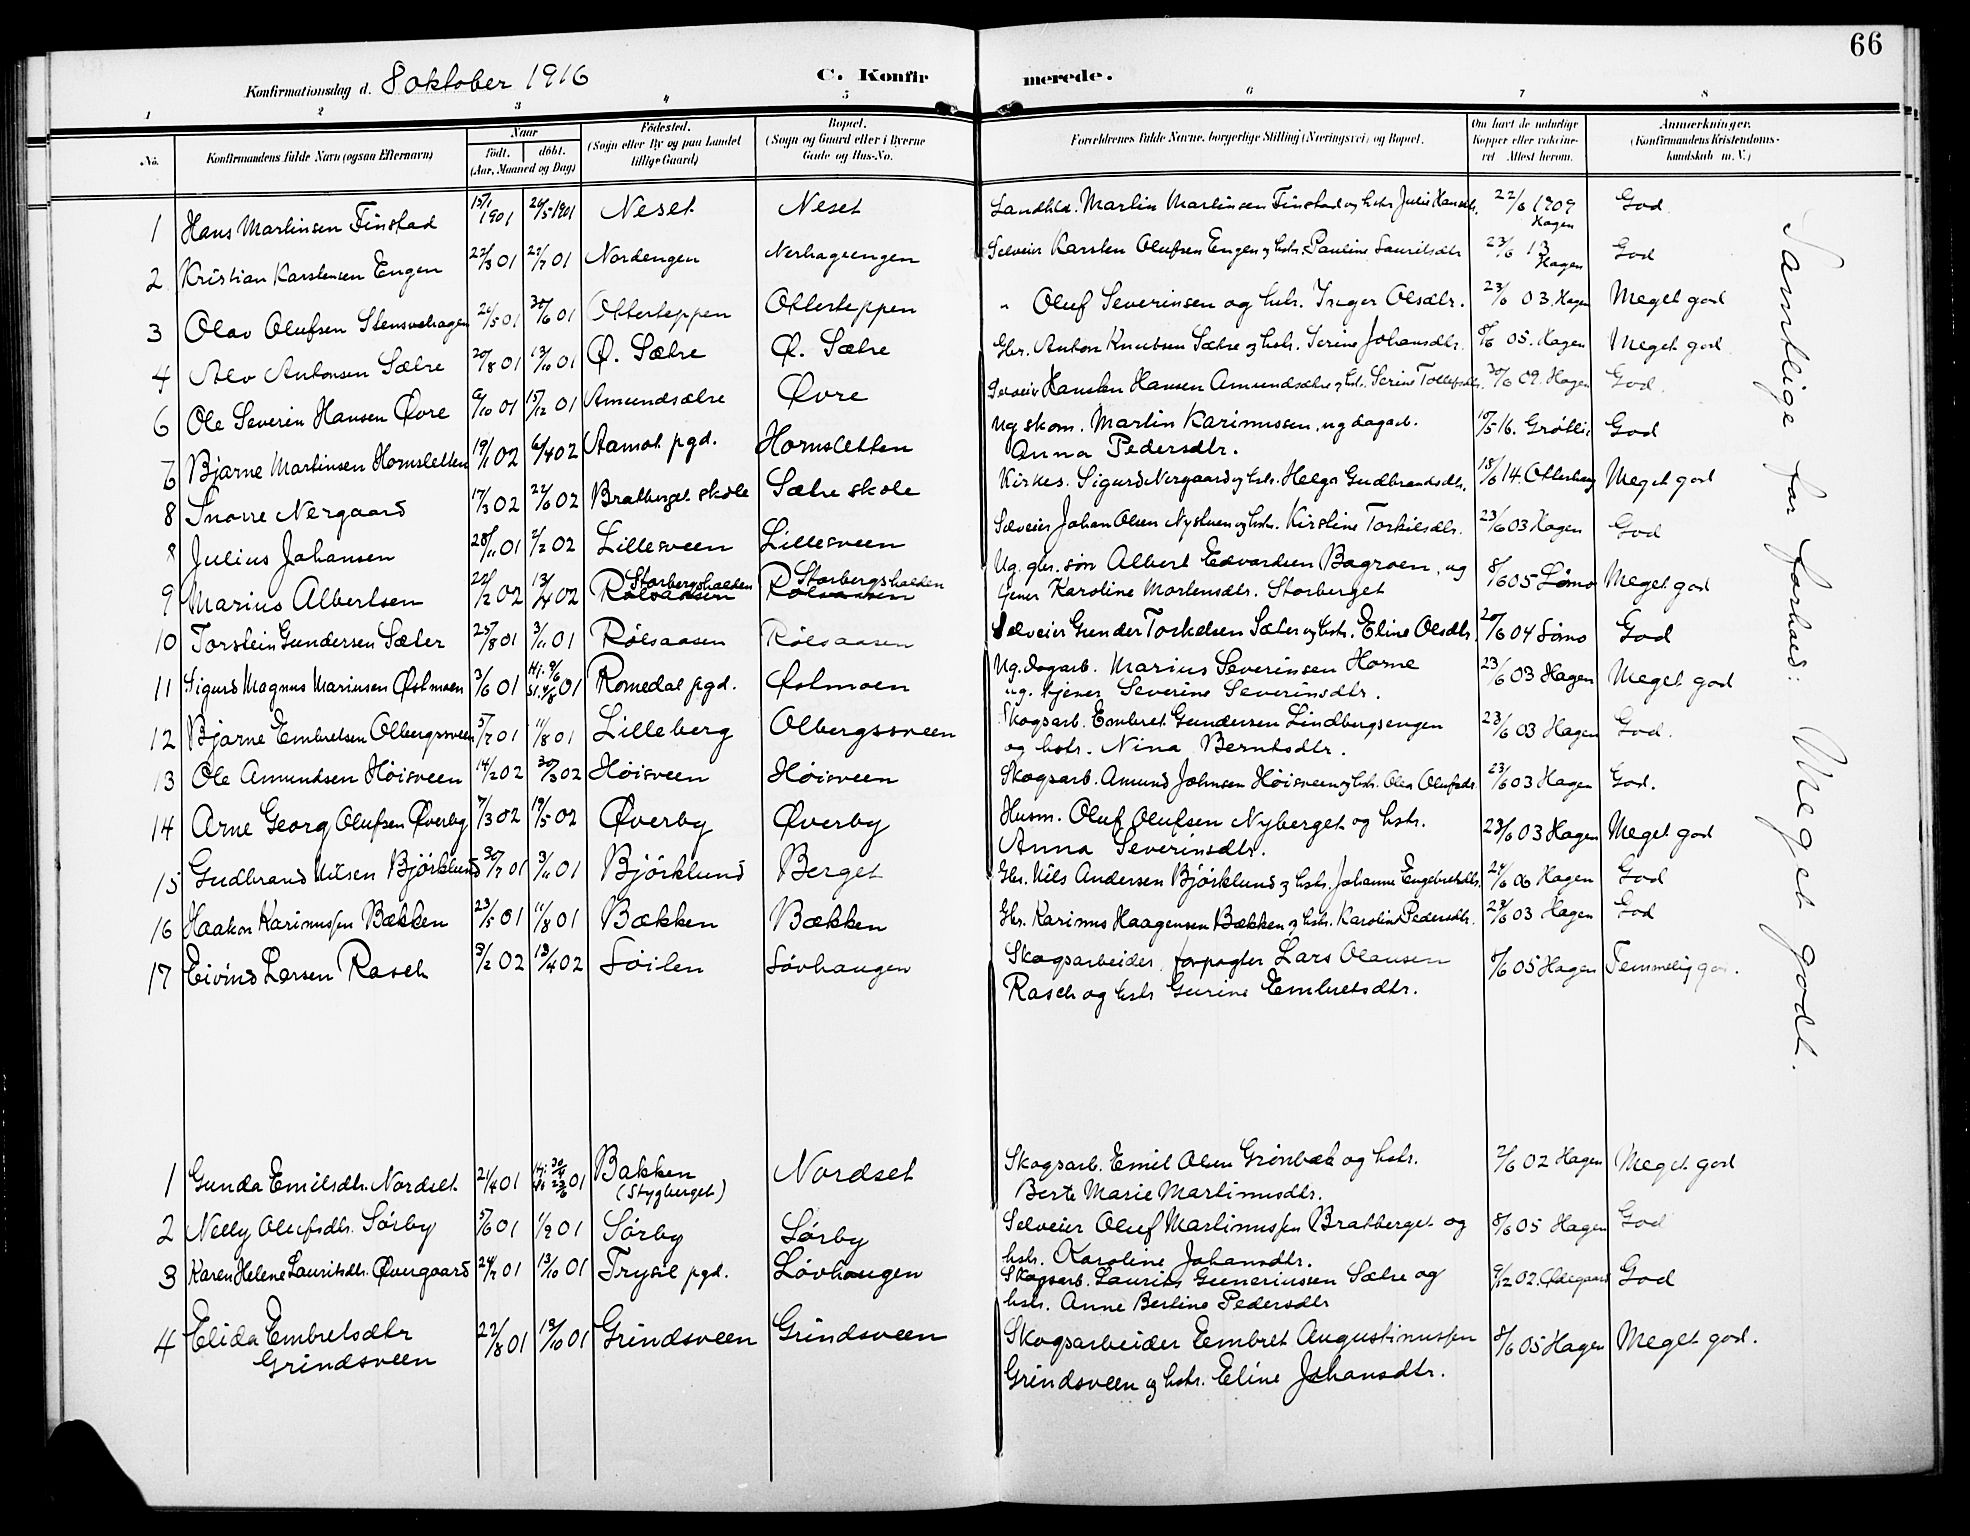 66
Konfirmationsdag d. 8 oktober 1916 C. Konfirmerede.
1 2 3 4 5 6 7 8
No. Konfirmandens fulde Navn (ogsaa Efternavn) Naar født. døbt. (Aar, Maaned og Dag) Fødested. (Sogn eller By og paa Landet tillige Gaard) Bopæl. (Sogn og Gaard eller i Byerne Gade og Hus-No. Forældrenes fulde Navne, borgerlige Stilling (Næringsvei) og Bopæl. Om havt de naturlige Kopper eller vaccineret Attest herom. Anmærkninger. (Konfirmandens Kristendomskundskab m. V.)
1 Hans Martinsen Finstad 15/1 1901 26/5 1901 Neset Neset Landhld. Martin Martinsen Finstad og hstr. Julie Hansdtr. 22/6 1909 Hagen God
2 Kristian Karstensen Engen 22/3 01 21/7 01 Nordengen Nerhagsengen Selveier Karsten Olufsen Engen og hstr. Pauline Lauritsdtr 23/6 13 Hagen God
3 Olav Olufsen Stensvehagen 26/5 01 30/6 01 Olterteppen Olterteppen " Oluf Severinsen og hstr. Inger Olsdtr. 23/6 03. Hagen Meget god
4 Alv Antonsen Sætre 20/8 01 13/10 01 Ø. Sætre Ø. Sætre Gbr. Anton Knutsen Sætre og hstr. Serine Johansdtr. 8/6 05. Hagen Meget god
6 Ole Severin Hansen Øvre 9/10 01 15/12 01 Amundsætre Øvre Selveier Hansten Hansen Amundsætre og hstr. Serine Tollefsdtr. 20/6 09. Hagen God.
6 Bjarne Martinsen Hornsletten 19/1 02 6/4 02 Aamot pgd. Hornsletten Ug skom. Martin Karinussen, ug dagarb. 10/5 16. Grøtli God
Anna Pedersdtr.
8 Snorre Nergaard 17/3 02 22/6 02 Bratberget skole Sætre skole Kirkes. Sigurd Nergaard og hstr. Helga Gudbrandsdtr. 18/6 14. Otterberg Meget god
8 Julius Johansen 28/11 01 2/2 02 Lillesveen Lillesveen Selveier Johan Olsen Nystuen og hstr. Kirstine Torkilsdtr. 23/6 03 Hagen God
9 Marius Albertsen 22/2 02 13/4 02 Storbergshalden Storbergshalden Ug. gbr. søn Albert Edvardsen Bagroen, ug 8/6 05 Lømo Meget god
tjener Karoline Mortensdtr. Storberget
10 Torstein Gundersen Sæter 25/8 01 3/11 01 Rølsaasen Rølsaasen Selveier Gunder Torkelsen Sæter og hstr. Eline Olsdtr. 20/6 04 Lømo God
11 Sigurd Magnus Mariusen Østmoen 3/6 01 Hj. 9/6 St. 4/8 01 Romedal pgd. Østmoen Ug. Dagarb. Marius Severinsen Horne 23/6 03 Hagen Meget god
ug. tjener Severine Severinsdtr.
12 Bjarne Embretsen Olbergsveen 5/7 01 11/8 01 Lilleberg Olbergssveen Skogsarb. Embret Gundersen Lindbergsengen 23/6 03 Hagen God.
og hstr. Nina Berntsdtr.
13 Ole Amundsen Høisveen 14/2 02 30/3 02 Høisveen Høisveen Skogsarb. Amund Johnsen Høisveen og hstr. Olea Olufsdtr. 23/6 03 Hagen God.
14 Arne Georg Olufsen Øverby 7/3 02 19/5 02 Øverby Øverby Husm. Oluf Olufsen Nyberget og hstr. 23/6 03 Hagen Meget god
Anna Severinsdtr.
15 Gudbrand Nilsen Bjørklund 30/7 01 3/11 01 Bjørklund Berget Gbr. Nils Andersen Bjørklund og hstr. Johanne Engebretsdtr. 21/6 06 Hagen God
16 Haakon Karinussen Bækken 23/5 01 11/8 01 Bækken Bækken Gbr. Karinus Haagensen Bækken og hstr. Karoline Pedersdtr. 23/6 03 Hagen God
17 Eivind Larsen Rasch 3/2 02 13/4 02 Søilen Løvhaugen Skogsarbeider, forpagter Lars Olausen 8/6 05 Hagen Temmelig god.
Rasch og hstr Gurine Embretsdtr.
1 Gunda Emilsdtr. Nordset 21/4 01 Hj. 30/4 Ki 23/6 01 Bakken (Stygberget) Nordset Skogsarb. Emil Olsen Grønbæk og hstr. 2/6 02 Hagen Meget god
Berte Marie Martinusdtr.
2 Nelly Olufsdtr. Sørby 5/6 01 1/9 01 Sørby Sørby Selveier Oluf Martinussen Bratberget og 8/6 05 Hagen God
hstr. Karoline Johansdtr.
3 Karen Helene Lauritsdtr. Øvergaard 24/7 01 13/10 01 Trysil pgd. Løvhaugen Skogsarb. Laurits Gunariussen Sætre og 9/12 02. Ødegaard God
hstr. Anne Bertine Pedersdtr
4 Elida Embretsdtr 22/8 01 19/10 01 Grindsveen Grindsveen Skogsarbeider Embret Augustinussen 8/6 05 Hagen Meget god.
Grindsveen Grindsveen og hstr. Eline Johansdtr.
Samtlige for forhold: Meget godt.